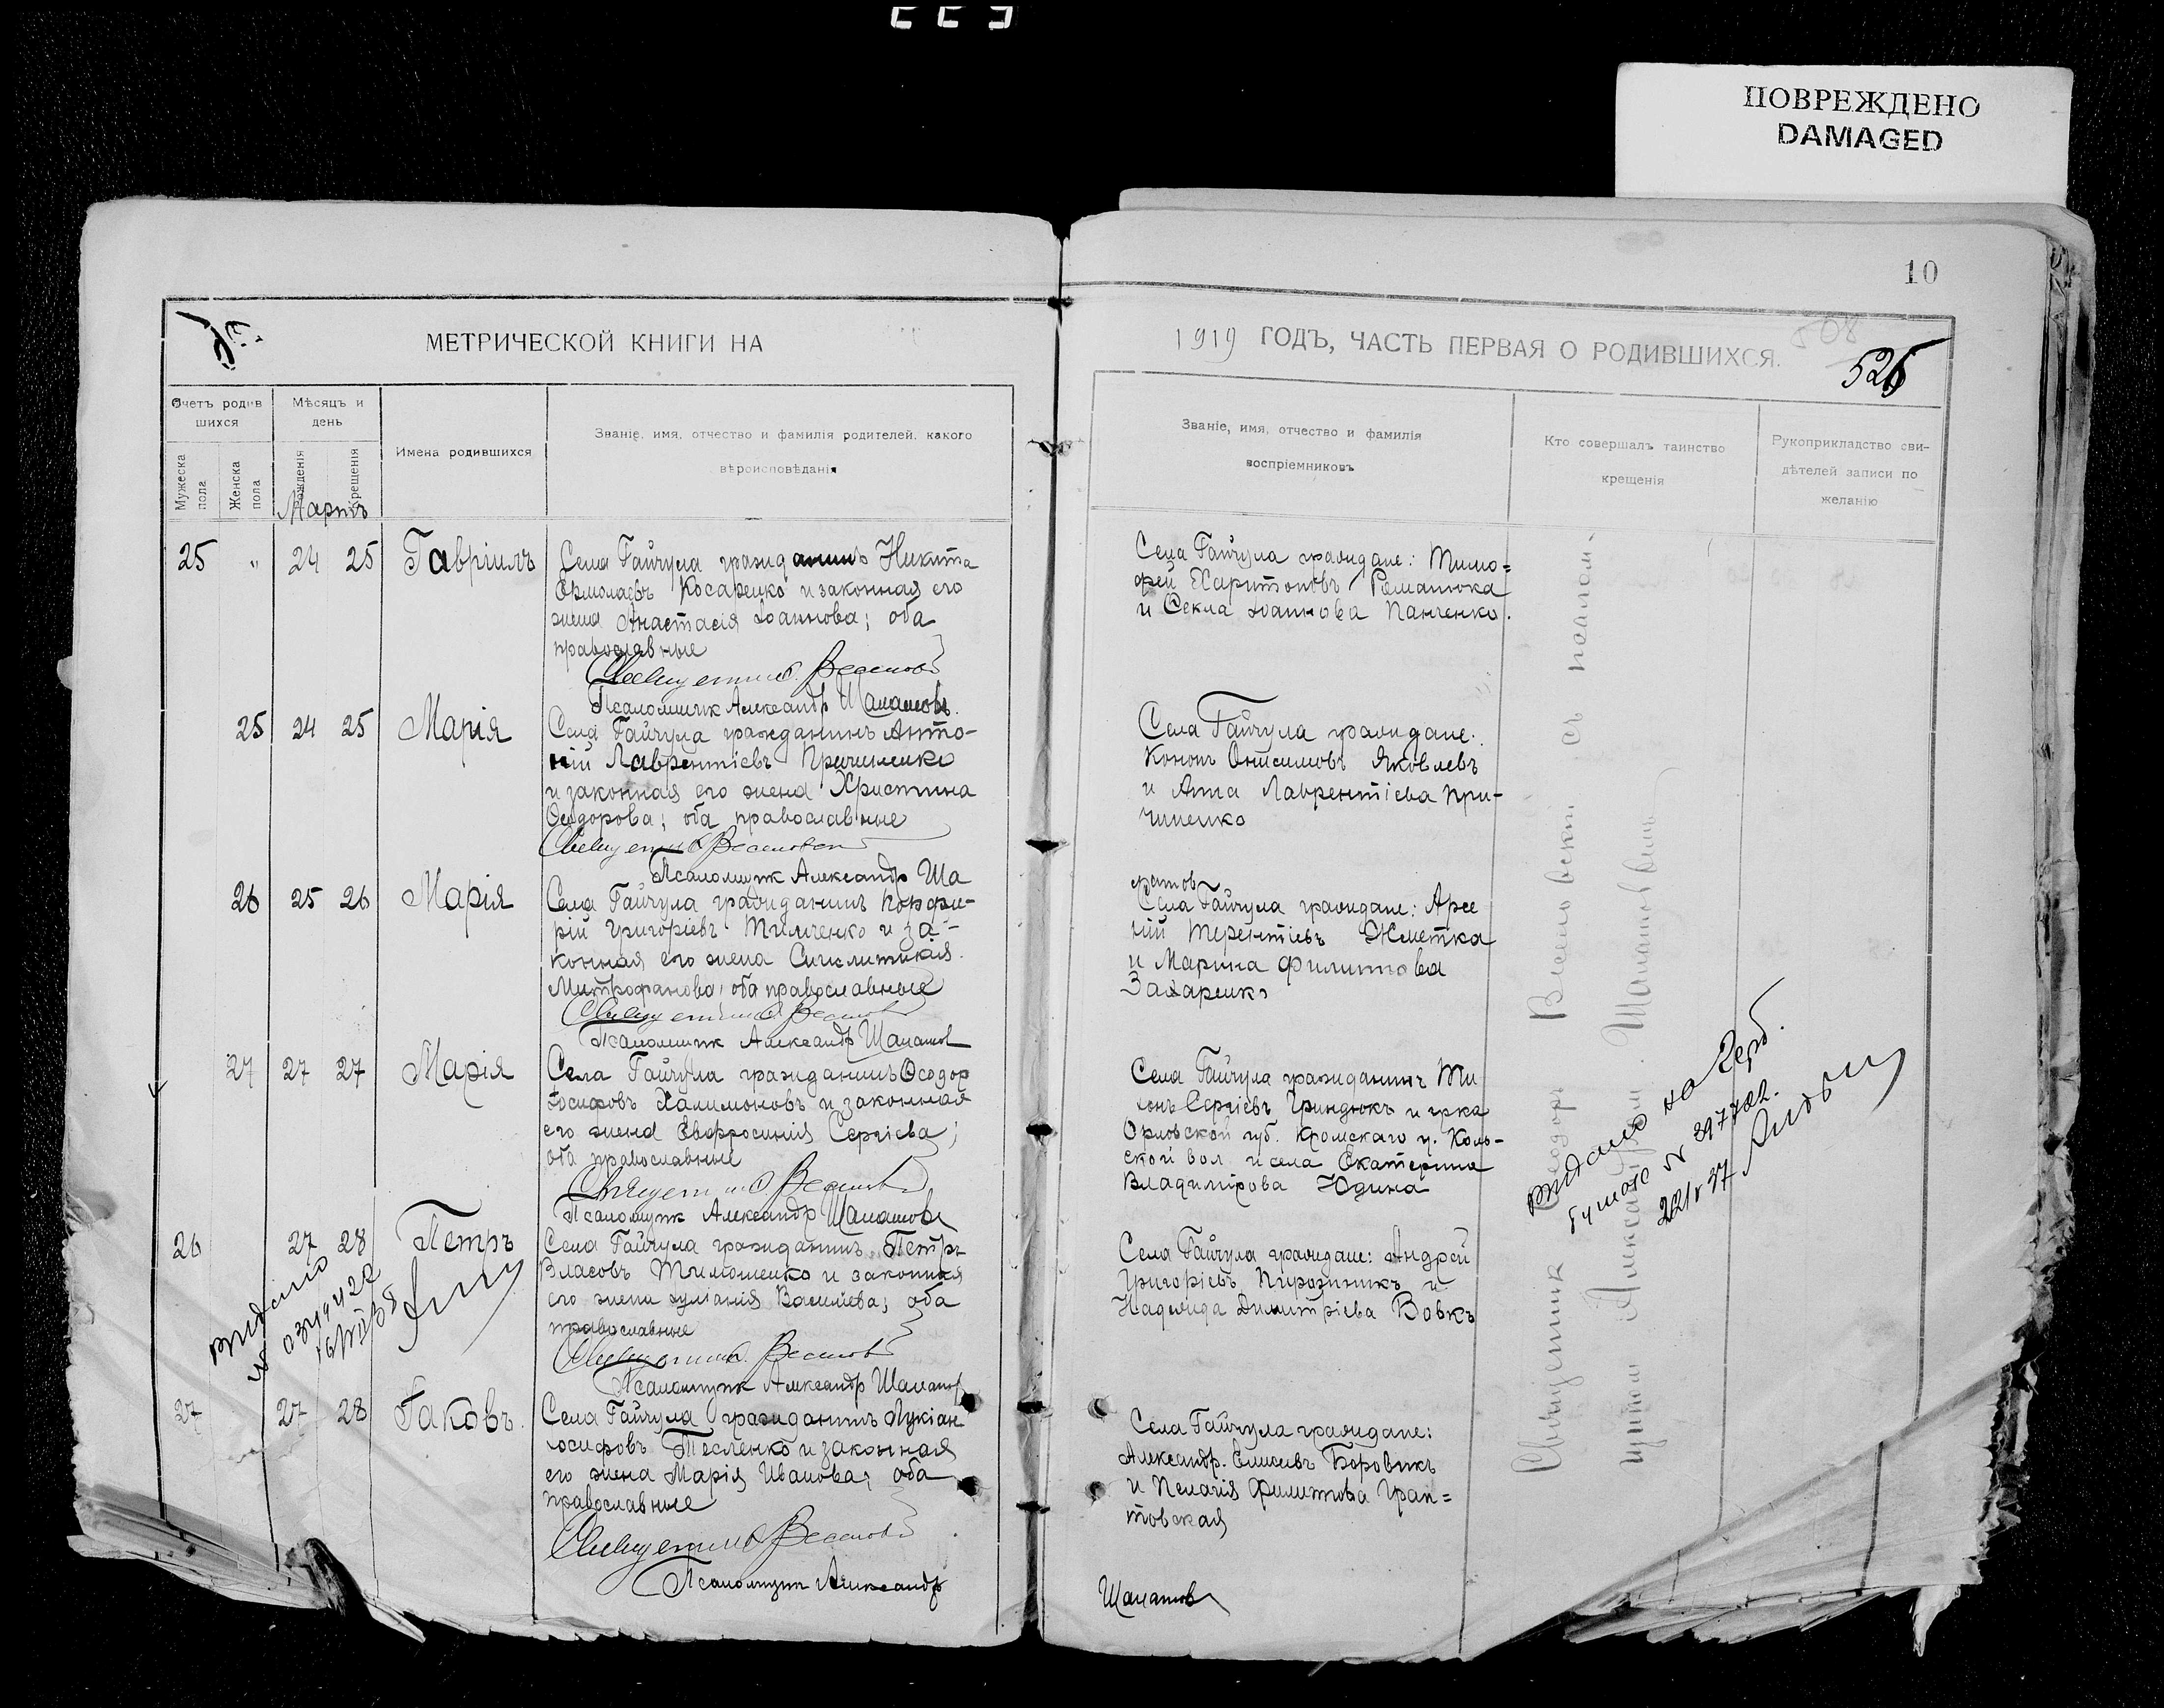 ПОВРЕЖДЕНО
DAMAGED
10
МЕТРИЧЕСКОЙ КНИГИ НА
1919 ГОДЪ, ЧАСТЬ ПЕРВАЯ О РОДИВШИХСЯ.
508
526
Счетъ родив
шихся
Мужеска
пола
Женска
пола
Мѣсяцъ и
день
рожденія
крещенія
Имена родившихся
Званіе, имя, отчество и фамилія родителей, какого
вѣроисповѣданія
Званіе, имя, отчество и фамилія
воспріемниковъ
Кто совершалъ таинство
крещенія
Рукоприкладство сви-
дѣтелей записи по
желанію
Мартъ
25 " 24 25 Гавріилъ
Села Гайчула гражданинъ Никита
Ермолаевъ Косаренко и законная его
жена Анастасія Іоаннова; оба
православные
Псаломщик Александр Шаматов
Села Гайчула граждане: Тимо=
фей Харитоновъ Романюка
и Fекла Іоаннова Панченко.
25 24 25 Марія
Села Гайчула гражданинъ Анто-
ній Лаврентіевъ Причиненко
и законная его жена Христина
Ѳеодорова; оба православные
Псаломщик Александр Ша
матов
Села Гайчула граждане:
Кононъ Онисимовъ Яковлевъ
и Анна Лаврентіева При-
чиненко
26 25 26 Марія
Села Гайчула гражданинъ Порфи-
рій Григоріевъ Тимченко и за-
конная его жена Синклитикія
Митрофанова; оба православные
Псаломщик Александр Шаматов
Села Гайчула граждане: Арсе
ній Терентіевъ Жметка
и Марина Филиппова
Захаренко
27 27 27 Марія
Села Гайчула гражданинъ Ѳеодор
Іосифовъ Халимоновъ и законная
его жена Евфросинія Сергіева;
оба православные
Псаломщик Александр Шаматов
Села Гайчула гражданинъ
Сергіевъ Гриндюкъ и гр-ка
Орловской губ. Кромскаго у.
ской вол. и села Екатерина
Владимірова Юдина
26 27 28 Петръ
Села Гайчула гражданинъ Петръ
Власовъ Тимошенко и законная
его жена Іуліанія Василіева; оба
православные
Псаломщик Александр Шаматов
Села Гайчула граждане: Андрей
Григоріевъ Пирожникъ и
Надежда Димитріева Вовкъ
27 27 28 Іаковъ.
Села Гайчула гражданинъ Лукіан
Іосифовъ Тесленко и законная
его жена Марія Иванова; оба
православные
Псаломщик Александр
Шаматов
Села Гайчула граждане:
Александр. Елисеевъ Боровикъ
и Пелагія Филиппова Гран=
товская
Священник Ѳеодоръ съ псалом-
щиком Александром
видано на Герб.